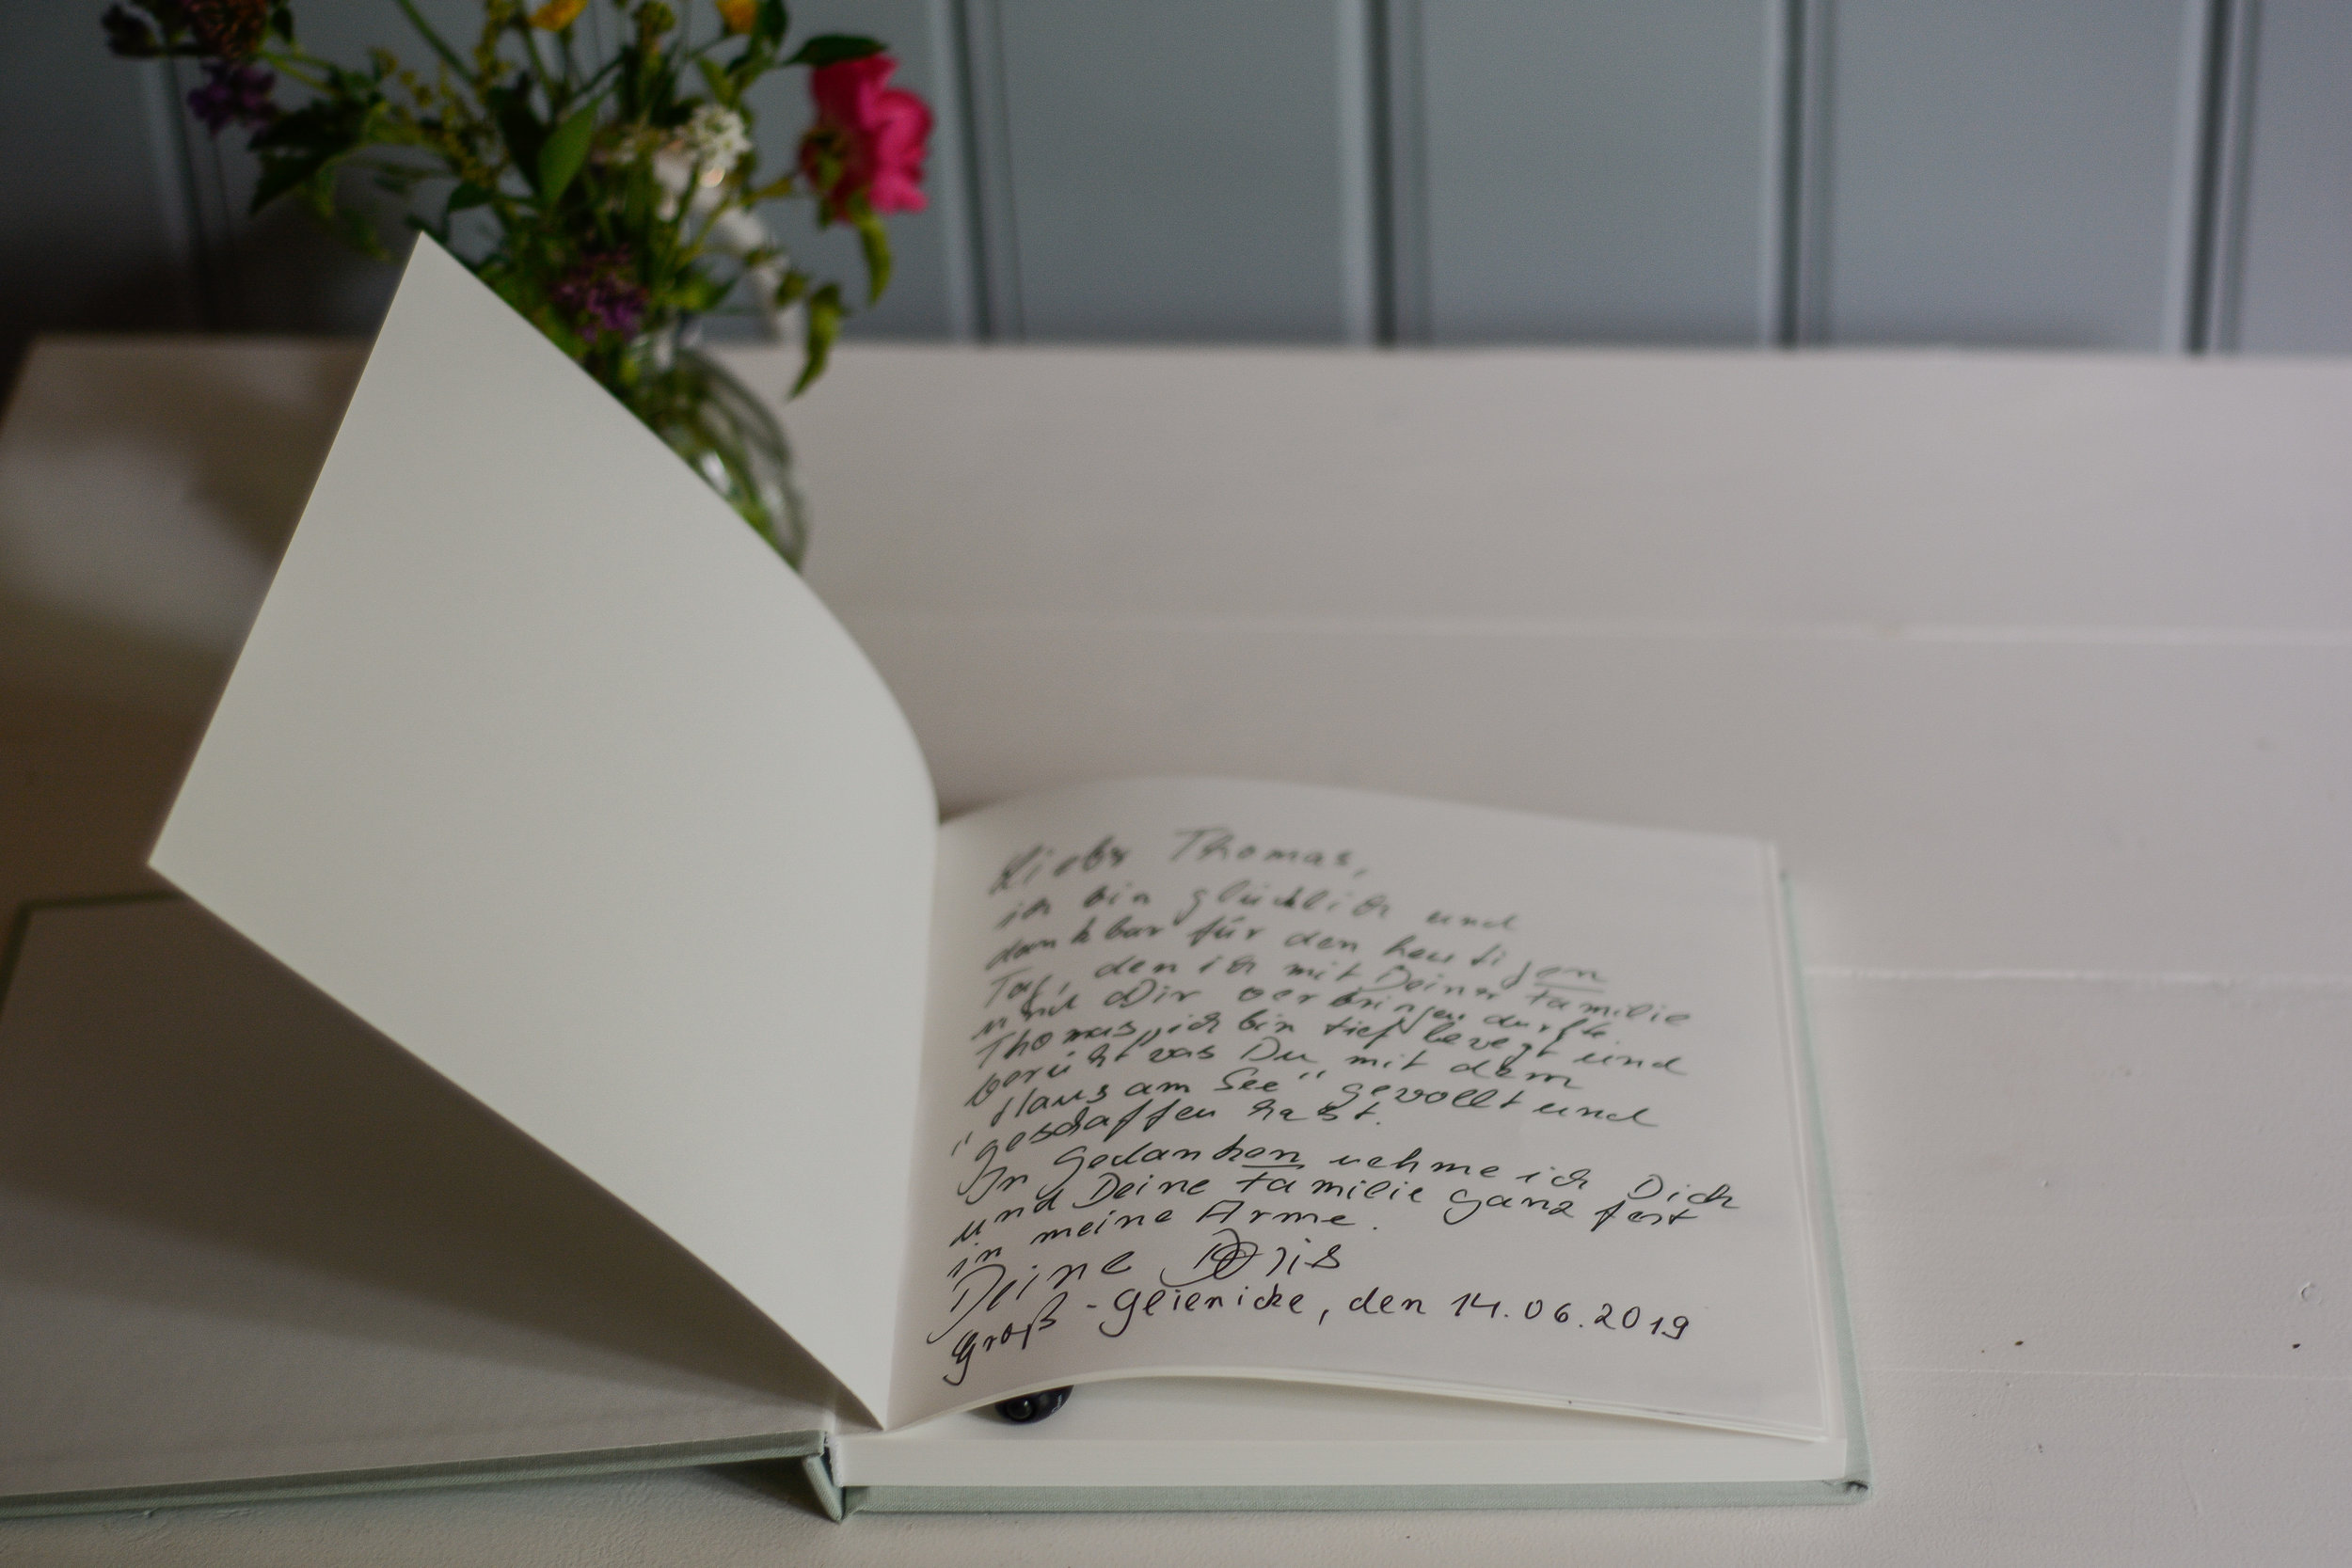 Lieber Thomas,
ich bin glücklich und
dankbar für den heutigen
Tag, den ich mit Deiner Familie
und Dir verbringen durfte.
Thomas, ich bin tief bewegt und
berührt was Du mit dem
"Haus am See" gewollt und
geschaffen hast.
In Gedanken nehme ich Dich
und Deine Familie ganz fest
in meine Arme.
Deine Doris
Groß-Glienicke, den 14.06.2019